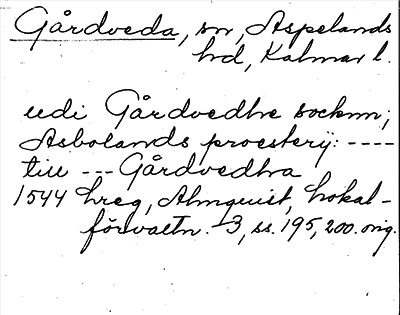 Gårdveda, sn, Aspelands
hd, Kalmar l.
udi Gårdvedhe socknn;
Asbolands proesterij: ----
till --- Gårdvedhra
1544 hreg, Almquist, Lokal-
förvaltn. 3, ss. 195, 200. orig.